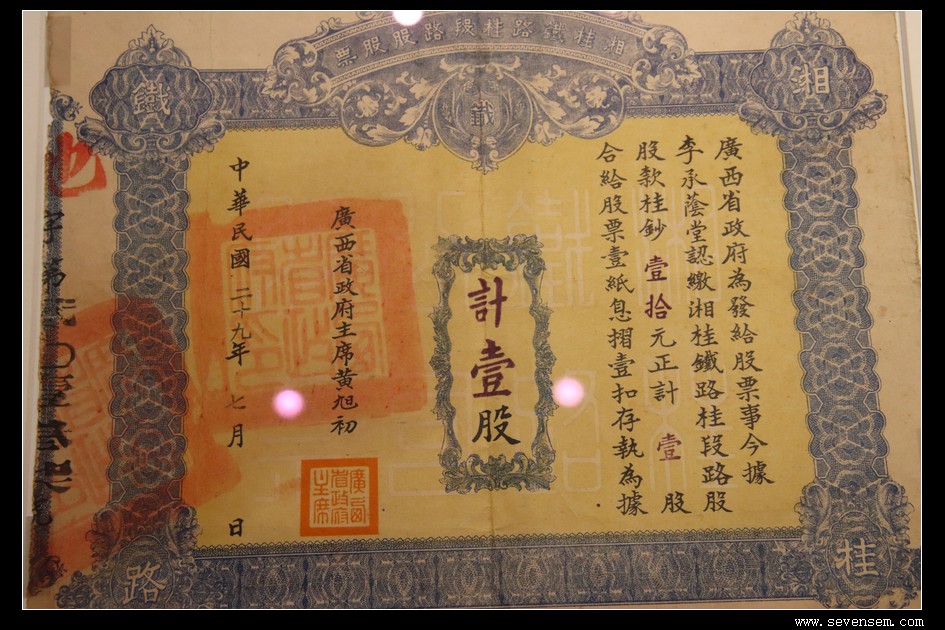 湘桂鐵路桂段路股股票
湘
桂
鐵
路
鐵
廣西省政府為發給股票事今據
李承蔭堂認繳湘桂鐵路桂段路股
股款桂鈔壹拾元正計壹股
合給股票壹紙息摺壹扣存執為據
計壹股
廣西省政府主席黃旭初
廣西省政府主席
中華民國二十九年七月日
字第
www.sevensem.com